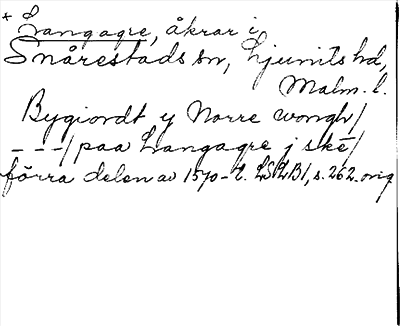 + Langagre, åkrar i
Snårestads sn, Ljunits hd,
Malm. l.
Bygiordt y Norre wongh/
---/paa Langagre j ske/
förra delen av 1570-t. LSLB1, s. 262. orig